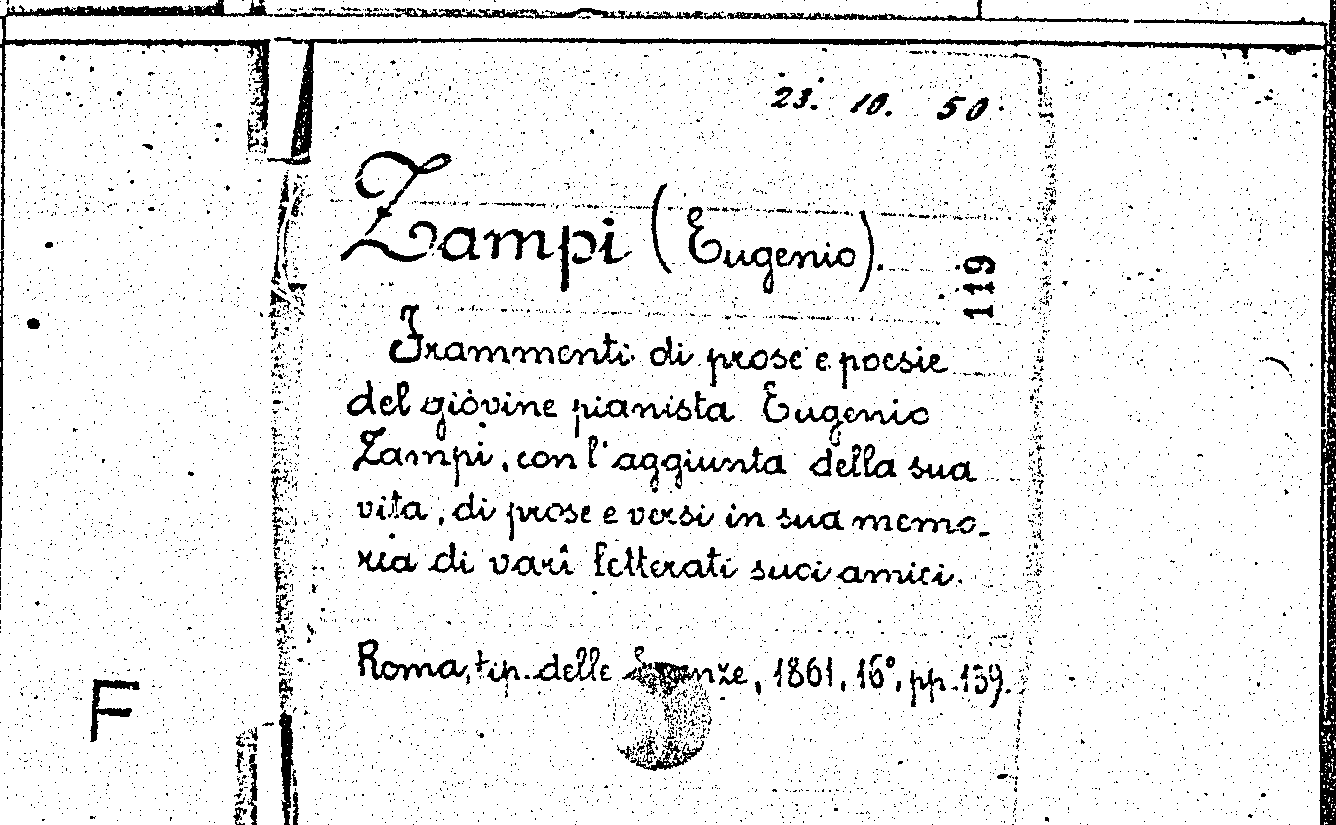 23. 10. 50
Zampi (Eugenio).
119
Frammenti di prose e poesie
del giovine pianista Eugenio
Zampi, con l'aggiunta della sua
vita, di prose e versi in sua memo-
ria di varî letterati suoi amici.
Roma, tip. delle Scienze, 1861, 16°, pp. 139.
F